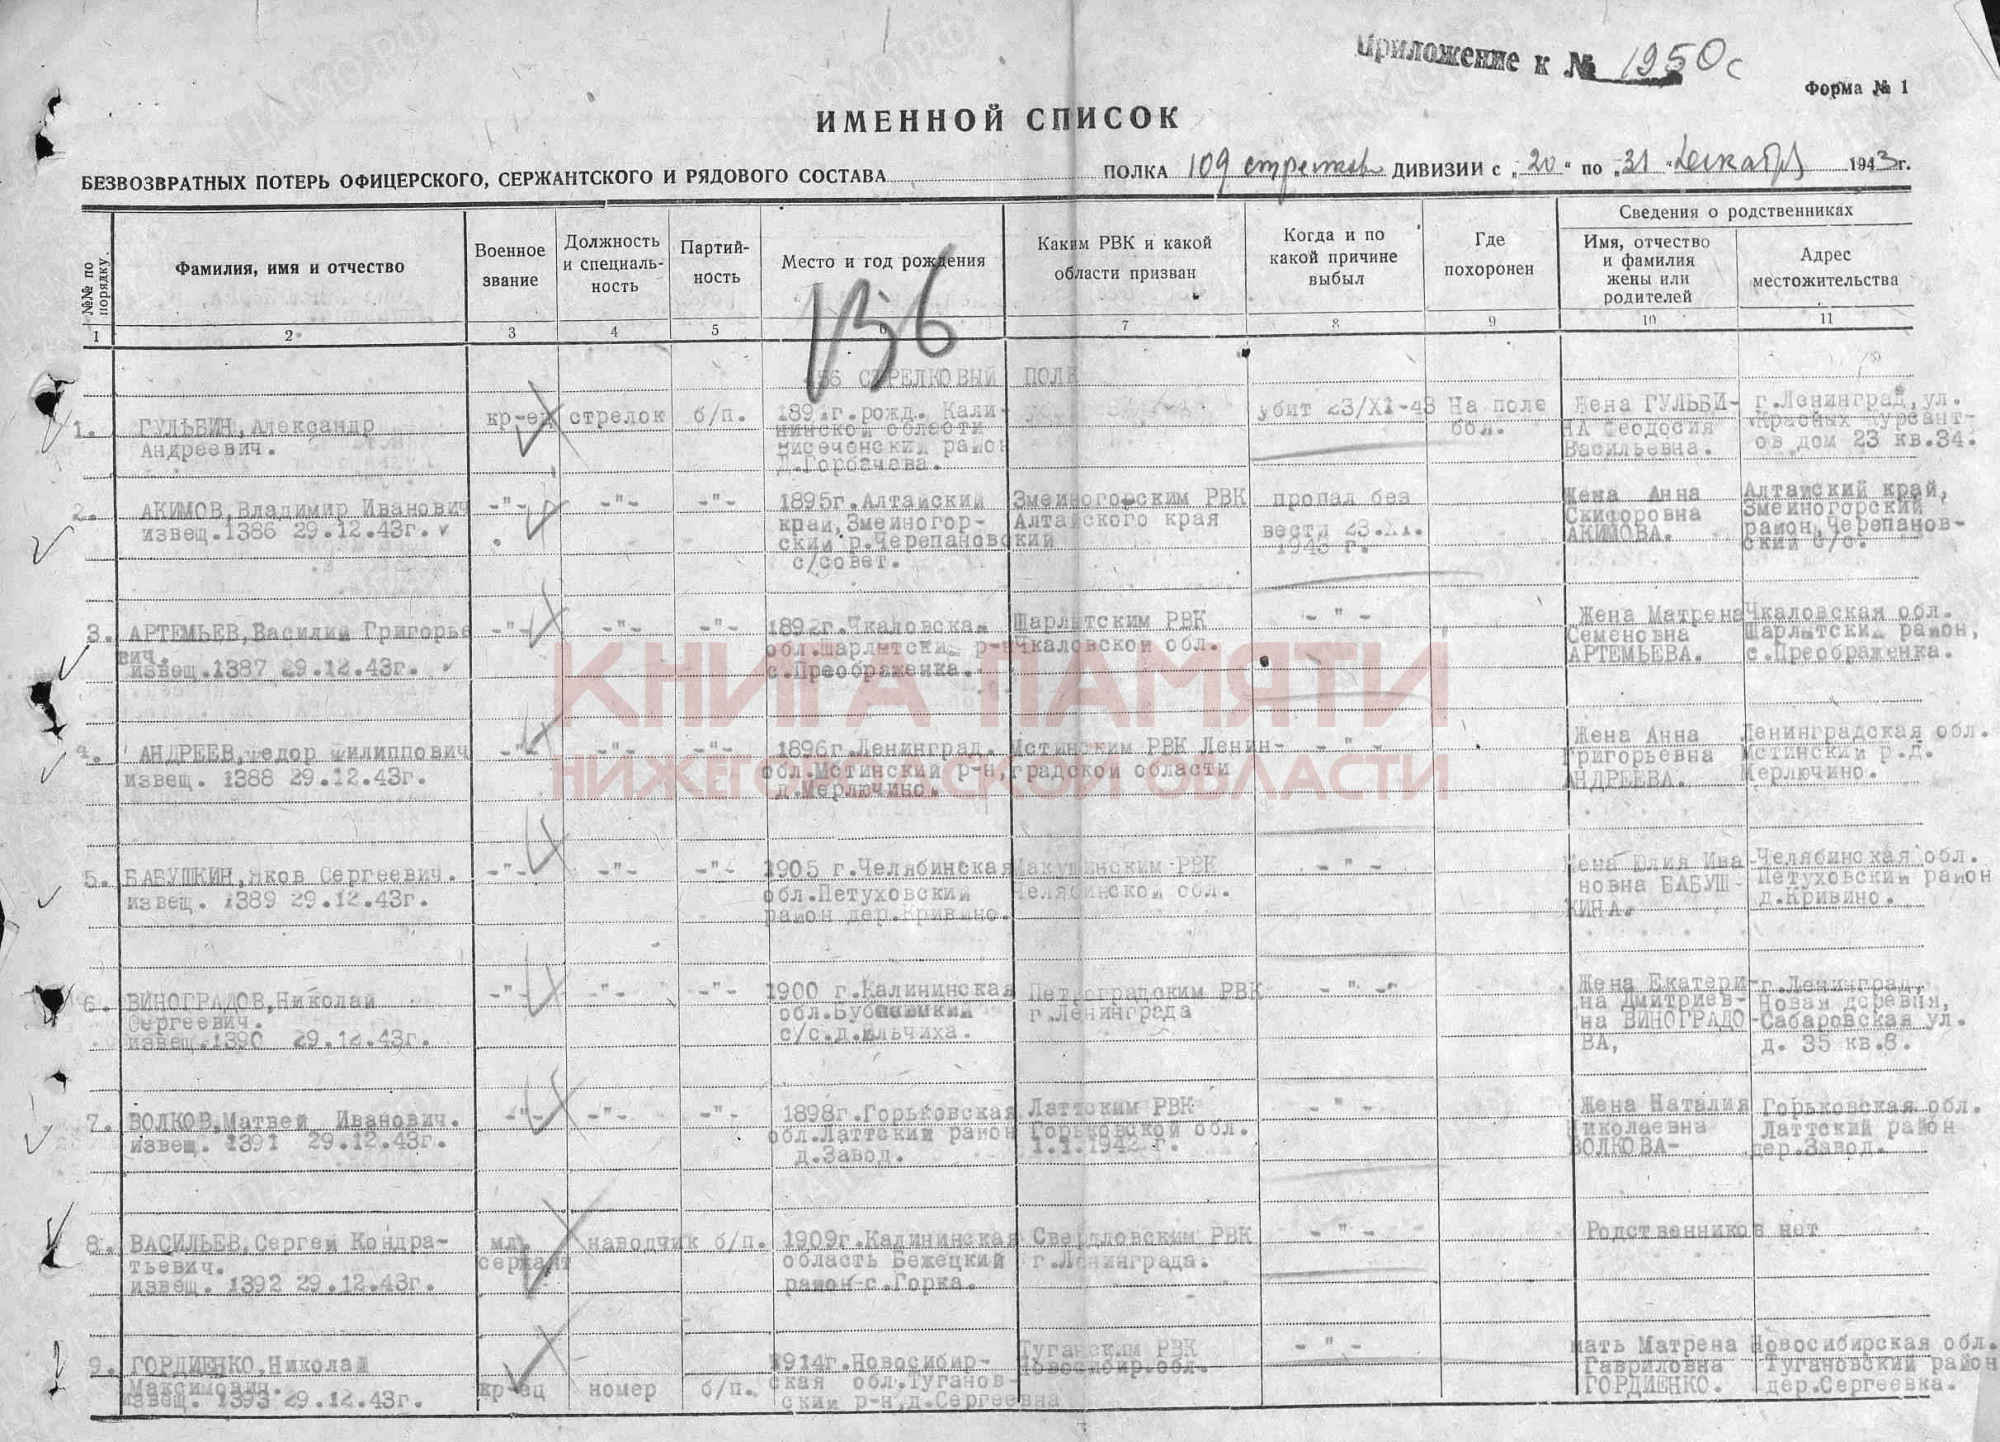 Приложение к № 1950с
Форма № 1
ИМЕННОЙ СПИСОК
БЕЗВОЗВРАТНЫХ ПОТЕРЬ ОФИЦЕРСКОГО, СЕРЖАНТСКОГО И РЯДОВОГО СОСТАВА ПОЛКА 109 стрелков ДИВИЗИИ с „20“ по „31“ декабря 1943г.
№№ по порядку.
Фамилия, имя и отчество
Военное звание
Должность и специаль-ность
Партий-ность
Место и год рождения
Каким РВК и какой области призван
Когда и по какой причине выбыл
Где похоронен
Сведения о родственниках
Имя, отчество и фамилия жены или родителей
Адрес местожительства
1 2 3 4 5 6 7 8 9 10 11
136
СТРЕЛКОВЫЙ ПОЛК
1. ГУЛЬБИН,Александр
Андреевич.
кр-ец стрелок б/п.
г.рожд. Кали-
нинской области
район
д.Горбачева.
убит 23/XI-43
На поле
бол.
Жена ГУЛЬБИ-
НА Феодосия
Васильевна.
г.Ленинград,ул.
Красных Курсант-
ов дом 23 кв.34.
2. АКИМОВ,Владимир Иванович
извещ.1386 29.12.43г.
-"- -"- -"-
1895г.Алтайский
край,Змеиногор-
ский р.Черепановский
с/совет.
Змеиногорским РВК
Алтайского края
пропал без
вести 23.XI.
1943 г.
Жена Анна
Скифоровна
АКИМОВА.
Алтайский край,
Змеиногорский
район,Черепанов-
ский с/с.
3. АРТЕМЬЕВ,Василий Григорье
вич.
извещ.1387 29.12.43г.
-"- -"- -"-
1892г.Чкаловская
обл.Шарлытский р-н
с.Преображенка.
Шарлытским РВК
Чкаловской обл.
- " -
Жена Матрена
Семеновна
АРТЕМЬЕВА.
Чкаловская обл.
Шарлытский район,
с.Преображенка.
КНИГА ПАМЯТИ
НИЖЕГОРОДСКОЙ ОБЛАСТИ
4. АНДРЕЕВ,Федор Филиппович
извещ. 1388 29.12.43г.
-"- -"- -"-
1896г.Ленинград.
обл.Мстинский р-н,
д.Мерлючино.
Мстинским РВК Ленин-
градской области
- " -
Жена Анна
Григорьевна
АНДРЕЕВА.
Ленинградская обл.
Мстинский р.д.
Мерлючино.
5. БАБУШКИН,Яков Сергеевич.
извещ. 1389 29.12.43г.
-"- -"- -"-
1905 г.Челябинская
обл.Петуховский
район дер.Кривино.
Макушинским РВК
Челябинской обл.
- " -
Жена Юлия Ива-
новна БАБУШ-
КИНА.
Челябинская обл.
Петуховский район
д.Кривино.
6. ВИНОГРАДОВ,Николай
Сергеевич.
извещ.1390 29.12.43г.
-"- -"- -"-
1900 г.Калининская
с/с.д.Ильчиха.
Петроградским РВК
г.Ленинграда
- " -
Жена Екатери-
на Дмитриев-
на ВИНОГРАДО-
ВА,
г.Ленинград,
Новая деревня,
Сабаровская ул.
д. 35 кв.8.
7. ВОЛКОВ,Матвей Иванович.
извещ. 1391 29.12.43г.
-"- -"- -"-
1898г.Горьковская
обл.Латтский район
д.Завод.
Латтским РВК
Горьковской обл.
1.I.1942 г.
- " -
Жена Наталия
Николаевна
ВОЛКОВА-
Горьковская обл.
Латтский район
дер.Завод.
8. ВАСИЛЬЕВ,Сергей Кондра-
тьевич.
извещ. 1392 29.12.43г.
мл.
сержант
наводчик б/п.
1909г.Калининская
область Бежецкий
район с.Горка.
Свердловским РВК
г.Ленинграда.
- " -
Родственников нет
9. ГОРДИЕНКО,Николай
Максимович.
извещ. 1393 29.12.43г.
кр-ец номер б/п.
1914г.Новосибир-
ская обл.Туганов-
ский р-н,д.Сергеевна
Туганским РВК
Новосибир.обл.
- " -
мать Матрена
Гавриловна
ГОРДИЕНКО.
Новосибирская обл.
Тугановский район
дер.Сергеевка.